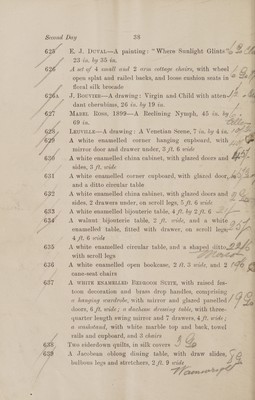 Second Day 38
625 E. J. DUVAL—A painting: "Where Sunlight Glints"
23 in. by 35 in.
626 A set of 4 small and 2 arm cottage chairs, with wheel
open splat and railed backs, and loose cushion seats in
floral silk brocade
626A J. BOUVIER—A drawing: Virgin and Child with atten-
dant cherubims, 26 in. by 19 in.
627 MABEL ROSS, 1899—A Reclining Nymph, 45 in. by
69 in.
628 LEOVILLE—A drawing: A Venetian Scene, 7 in. by 4 in.
629 A white enamelled corner hanging cupboard, with
mirror door and drawer under, 2 ft. 6 wide
630 A white enamelled china cabinet, with glazed doors and
sides, 3 ft. wide
631 A white enamelled corner cupboard, with glazed door,
and a ditto circular table
632 A white enamelled china cabinet, with glazed doors and
sides, 2 drawers under, on scroll legs, 5 ft. 6 wide
633 A white enamelled bijouterie table, 4 ft. by 2 ft. 6
634 A walnut bijouterie table, 2 ft. wide, and a white
enamelled table, fitted with drawer, on scroll legs,
4 ft. 6 wide
635 A white enamelled circular table, and a shaped ditto,
with scroll legs
636 A white enamelled open bookcase, 2 ft. 3 wide, and 2
cane-seat chairs
637 A WHITE ENAMELLED BEDROOM SUITE, with raised fes-
toon decoration and brass drop handles, comprising
a hanging wardrobe, with mirror and glazed panelled
doors, 6 ft. wide; a duchesse dressing table, with three-
quarter length swing mirror and 7 drawers, 4 ft. wide;
a washstand, with white marble top and back, towel
rails and cupboard, and 3 chairs
638 Two eiderdown quilts, in silk covers
639 A Jacobean oblong dining table, with draw slides,
bulbous legs and stretchers, 2 ft. 9 wide